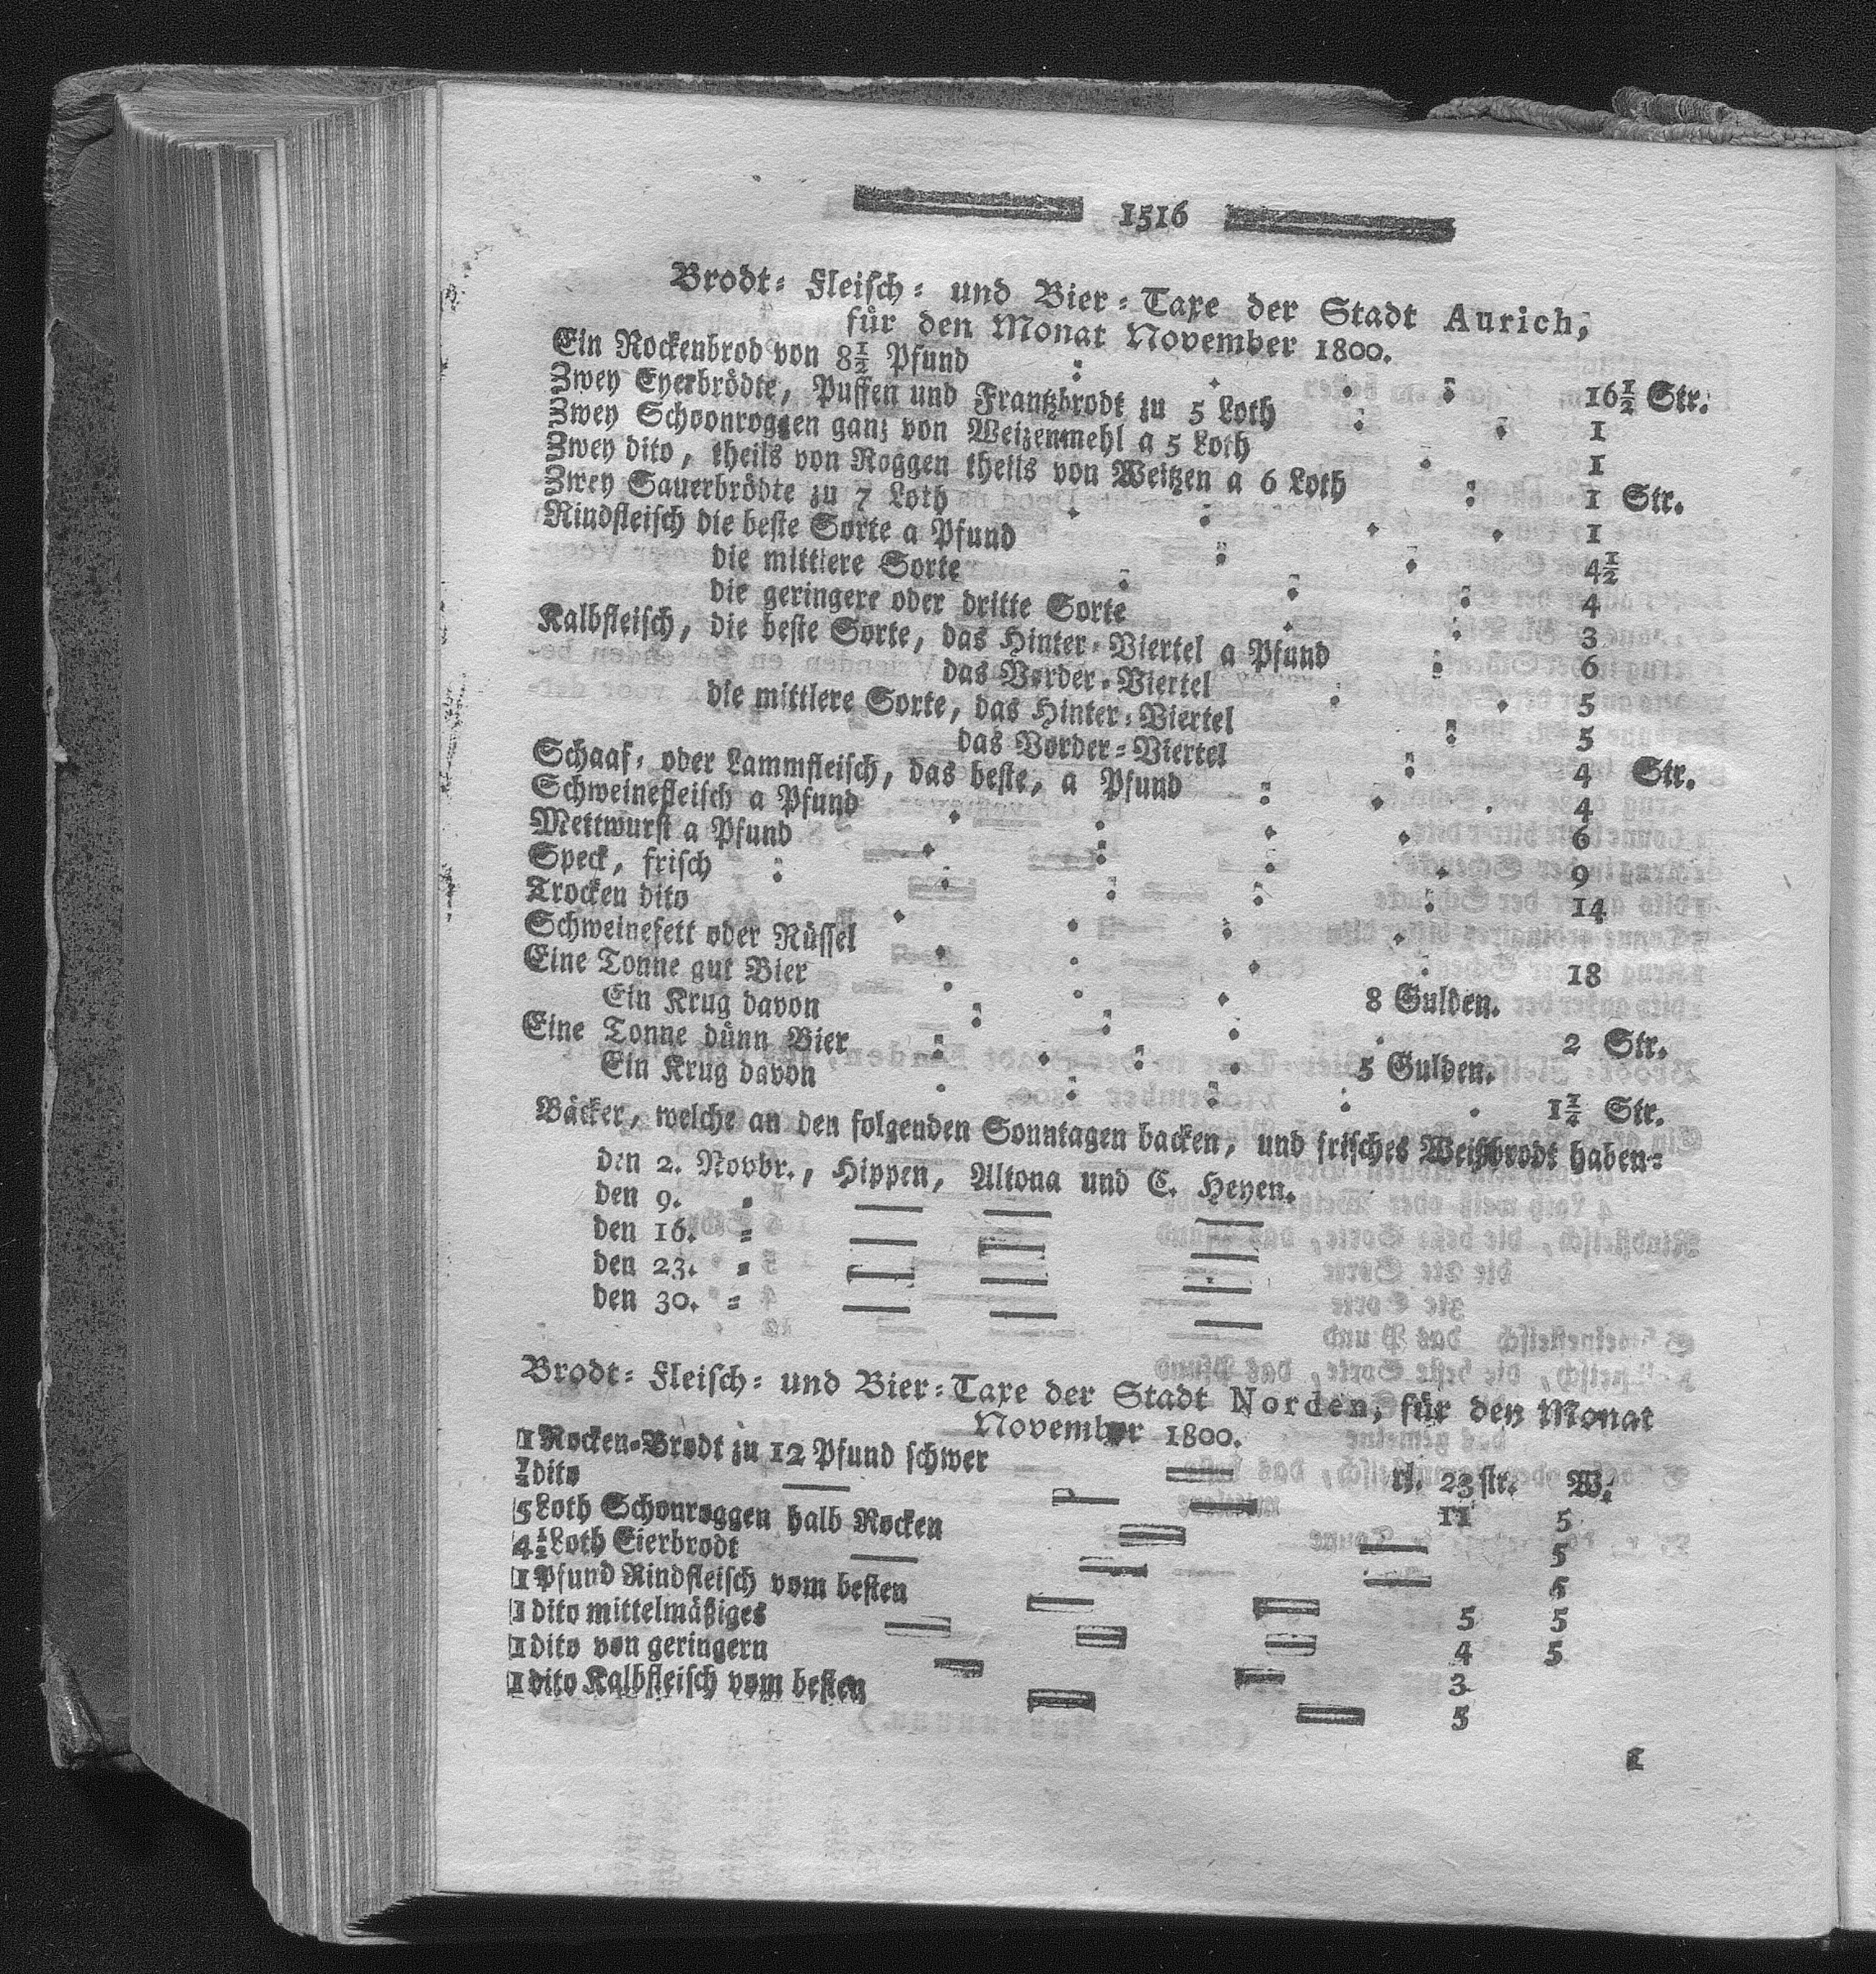 1516
Brodt= Fleisch= und Bier=Taxe der Stadt Aurich,
für den Monat November 1800.
Ein Rockenbrod von 8½ Pfund 16½ Str.
Zwey Eyerbrödte, Puffen und Frantzbrodt zu 5 Loth 1
Zwey Schoonroggen ganz von Weizenmehl a 5 Loth 1
Zwey dito, theils von Roggen theils von Weitzen a 6 Loth 1 Str.
Zwey Sauerbrödte zu 7 Loth 1
Rindfleisch die beste Sorte a Pfund 4½
die mittlere Sorte 4
die geringere oder dritte Sorte 3
Kalbfleisch, die beste Sorte, das Hinter=Viertel a Pfund 6
das Vorder=Viertel 5
die mittlere Sorte, das Hinter=Viertel 5
das Vorder=Viertel 4 Str.
Schaaf= oder Lammfleisch, das beste, a Pfund 4
Schweinefleisch a Pfund 6
Mettwurst a Pfund 9
Speck, frisch 14
Trocken dito
Schweinefett oder Rüssel 18
Eine Tonne gut Bier 8 Gulden.
Ein Krug davon 2 Str.
Eine Tonne dünn Bier 5 Gulden.
Ein Krug davon 1¼ Str.
Bäcker, welche an den folgenden Sonntagen backen, und frisches Weißbrodt haben=
den 2. Novbr., Hippen, Altona und C. Heyen.
den 9. = — — —
den 16. = — — —
den 23. = — — —
den 30. = — — —
Brodt= Fleisch= und Bier=Taxe der Stadt Norden, für den Monat
November 1800.
1 Rocken=Brodt zu 12 Pfund schwer — fl. 23 str. W.
½ dito — — — 11 5
5 Loth Schonroggen halb Rocken — — 5
4½ Loth Eierbrodt — — — 5
1 Pfund Rindfleisch vom besten — — 5 5
1 dito mittelmäßiges — — — 4 5
1 dito von geringern — — 3
1 dito Kalbfleisch vom besten — — 5
1